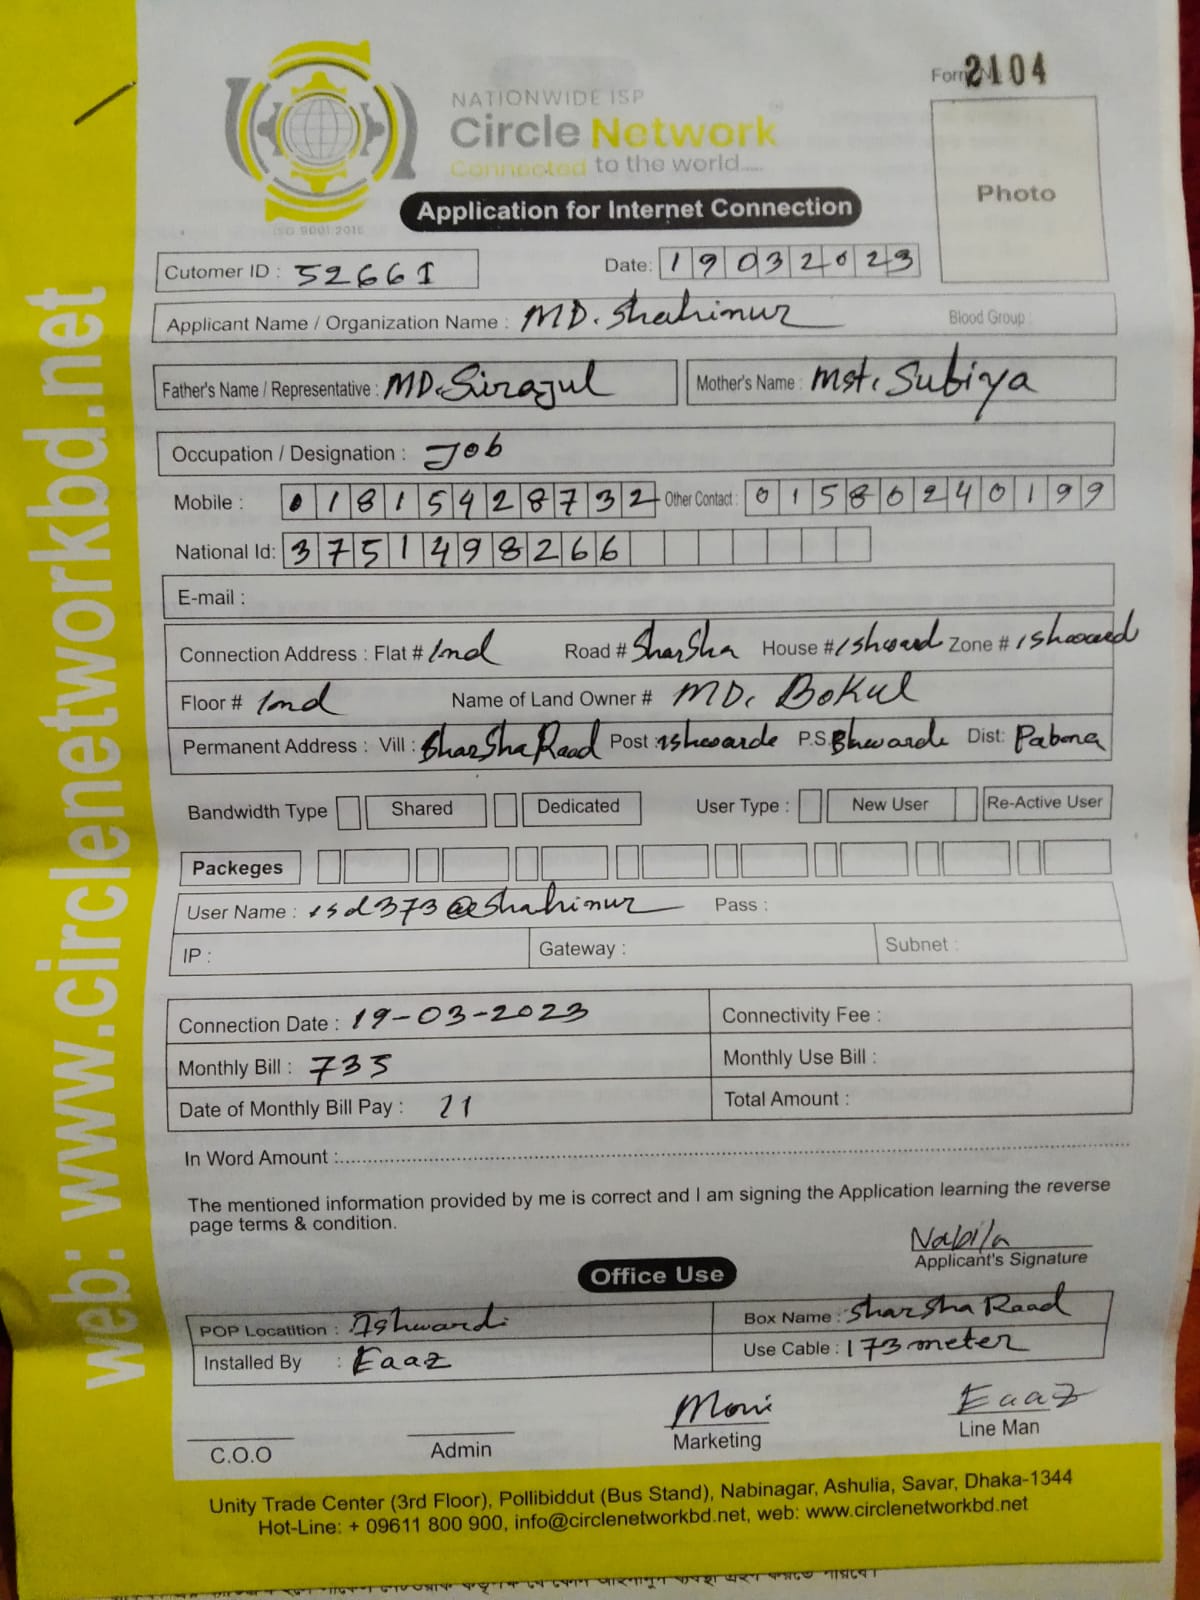 Form No 2104
NATIONWIDE ISP
Circle Network
Connected to the world.....
ISO 9001:2015
Photo
Application for Internet Connection
Cutomer ID : 52661 Date: 19032023
Applicant Name / Organization Name : MD. Shahinur Blood Group :
Father's Name / Representative : MD. Sirajul Mother's Name : Mst. Subiya
Occupation / Designation : Job
Mobile : 01815428732 Other Contact : 01580240199
National Id: 3751498266
E-mail :
Connection Address : Flat # 1nd Road # SharSha House # Zone #
Floor # 1nd Name of Land Owner # MD. Bokul
Permanent Address : Vill : SharSha Raad Post : ishwarde P.S. Dist: Pabona
Bandwidth Type Shared Dedicated User Type : New User Re-Active User
Packeges
User Name : isd373@shahinur Pass :
IP : Gateway : Subnet :
Connection Date : 19-03-2023 Connectivity Fee :
Monthly Bill : 735 Monthly Use Bill :
Date of Monthly Bill Pay : 21 Total Amount :
In Word Amount :
The mentioned information provided by me is correct and I am signing the Application learning the reverse
page terms & condition.
Nabila
Applicant's Signature
Office Use
POP Locatition : Ishwardi Box Name : SharSha Raad
Installed By : Eaaz Use Cable : 173 meter
Moni Eaaz
C.O.O Admin Marketing Line Man
Unity Trade Center (3rd Floor), Pollibiddut (Bus Stand), Nabinagar, Ashulia, Savar, Dhaka-1344
Hot-Line: + 09611 800 900, info@circlenetworkbd.net, web: www.circlenetworkbd.net
web: www.circlenetworkbd.net